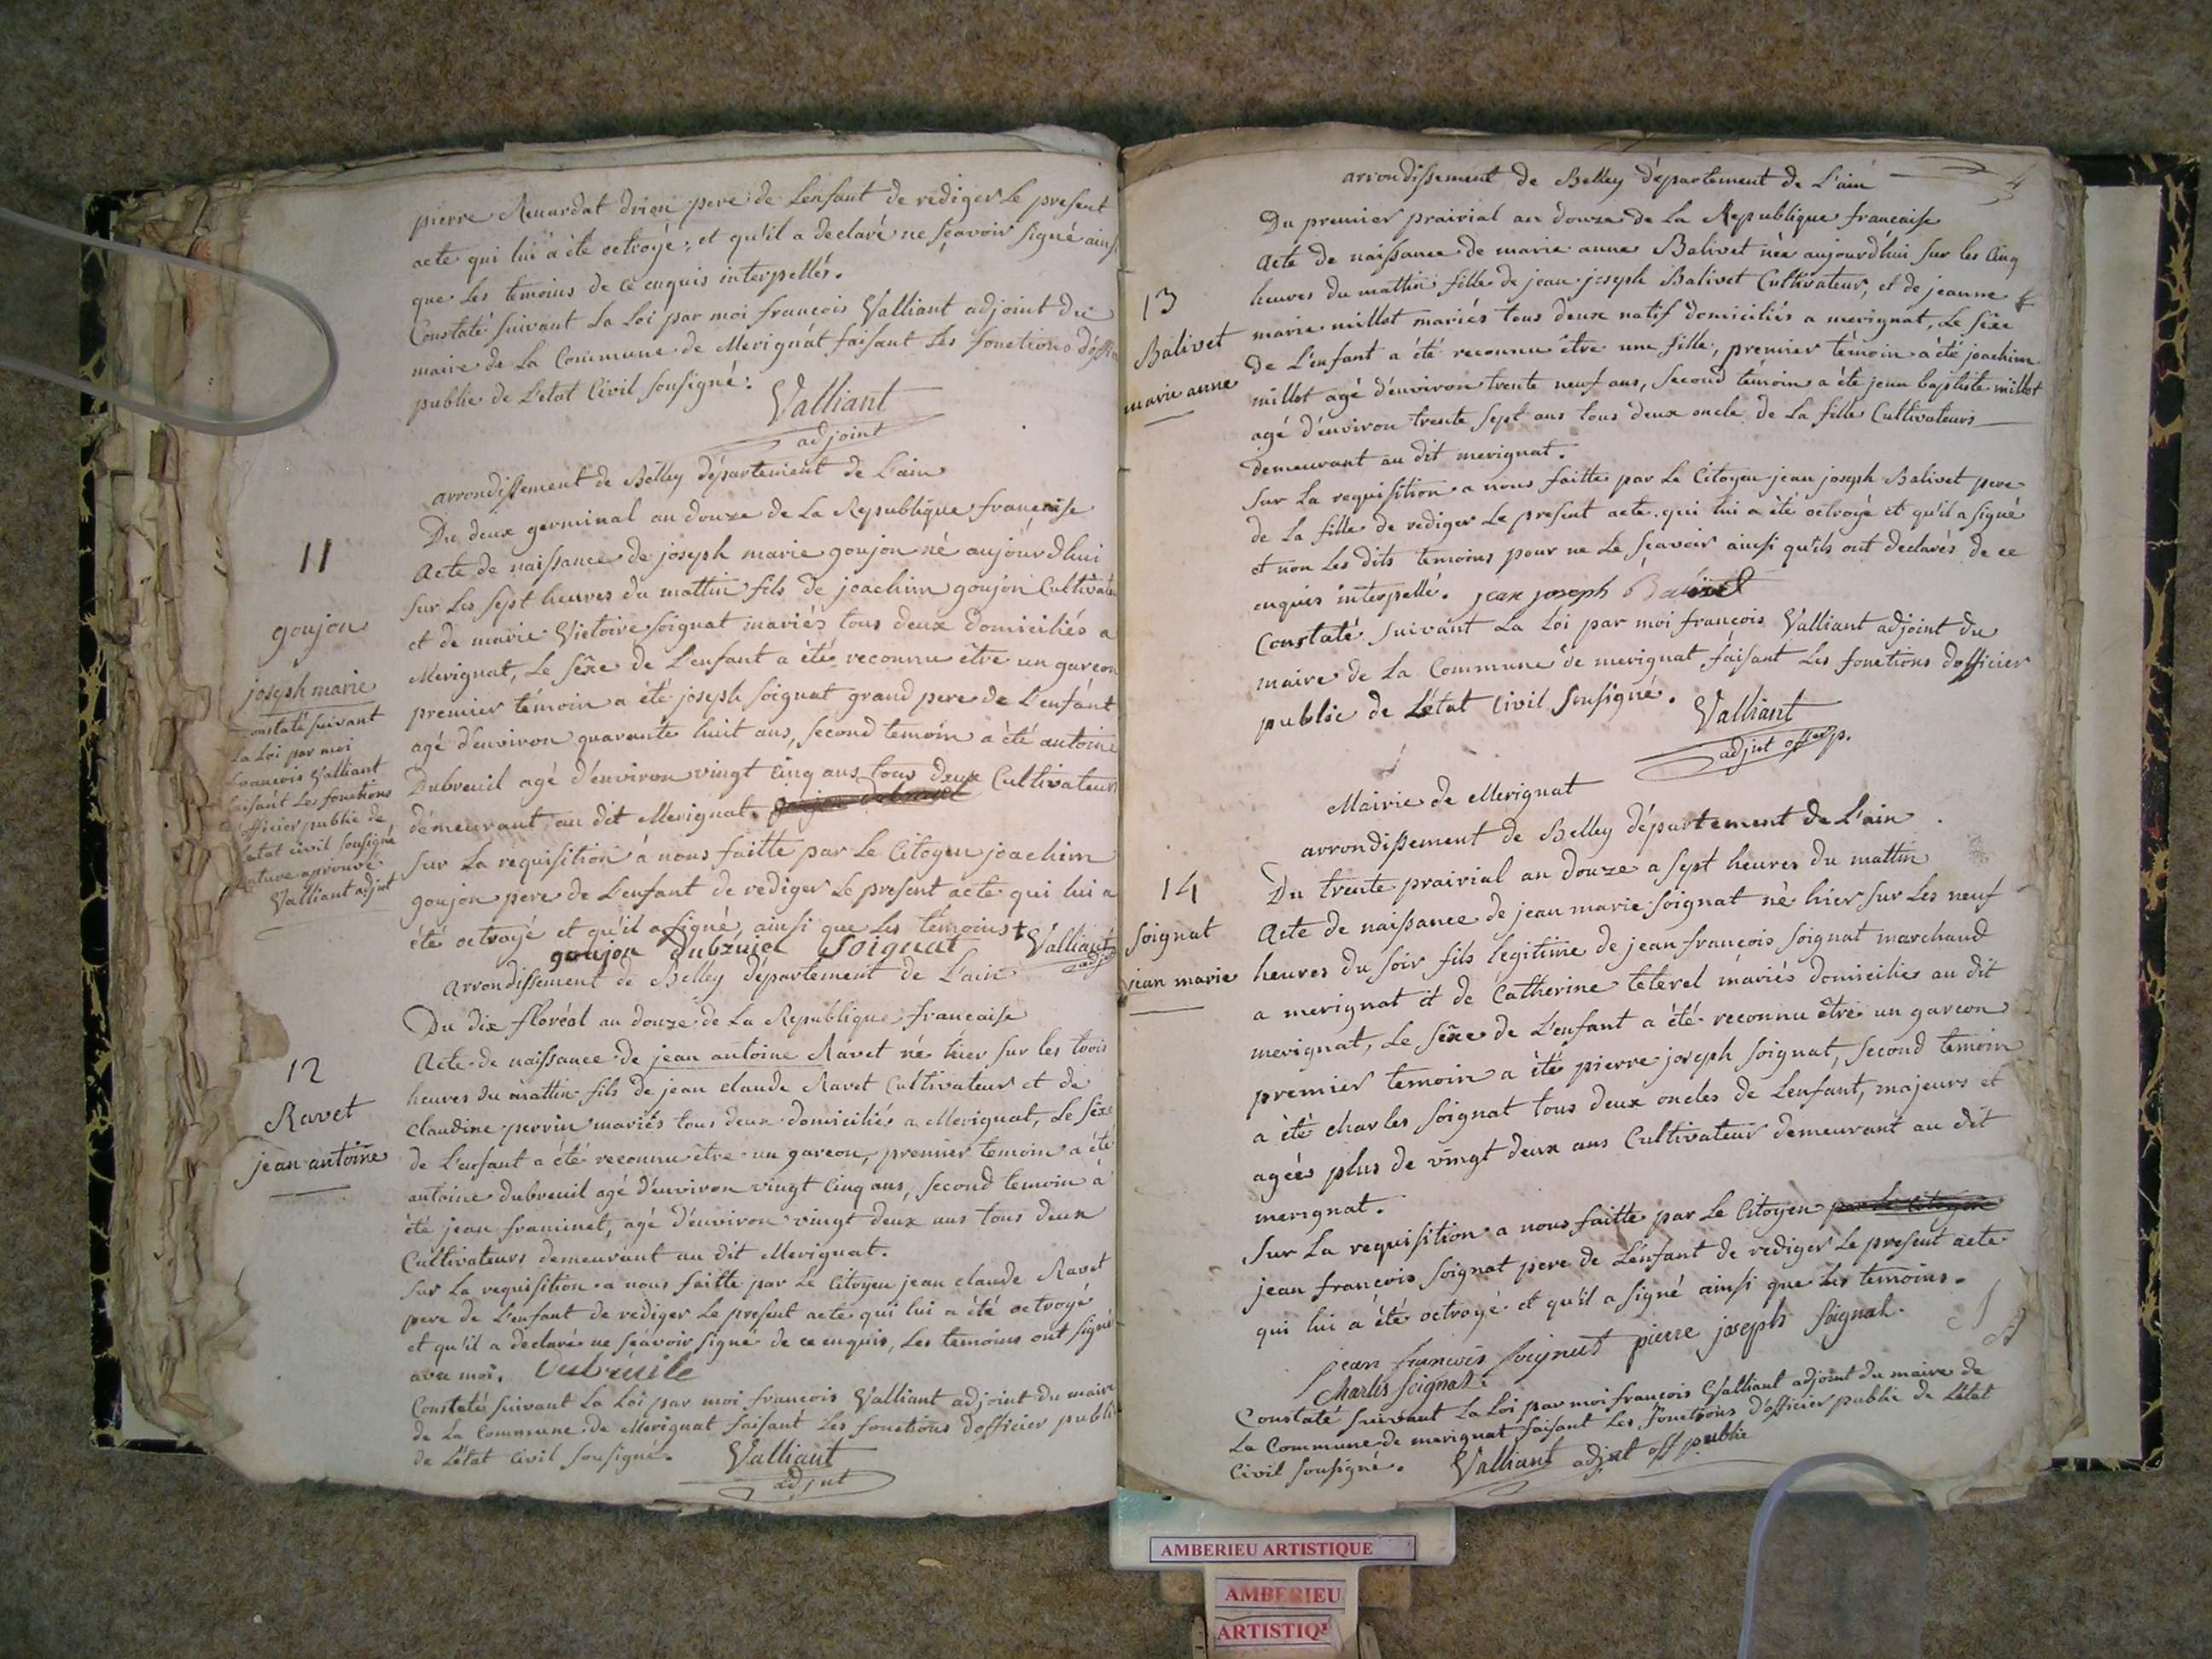 pierre Renardat drion pere de L'enfant de rediger Le present
acte qui lui a été octroyé, et qu'il a declaré ne sçavoir signé ainsi
que Les temoins de ce enquis interpellés.
Constaté suivant La Loi par moi françois Valliant adjoint du
maire de La Commune de Merignat faisant Les fonctions d'offi
public de L'etat Civil sousigné.
Valliant
adjoint
arrondissement de Belley département de L'ain
11
goujon
joseph marie
Constaté suivant
La Loi par moi
francois Valliant
faisant Les fonctions
officier public de
L'etat civil sousigné
rature aprouvé
Valliant adjnt
Du deux germinal an douze de La Republique française
Acte de naissance de joseph marie goujon né aujourdhui
sur Les sept heures du mattin fils de joachim goujon Cultivate
et de marie Victoire soignat mariés tous deux domiciliés a
Merignat, Le sexe de L'enfant a été reconnu être un garcon
premier témoin a été joseph soignat grand pere de L'enfant
agé d'environ quarante huit ans, second temoin a été antoine
Dubreuil agé d'environ vingt cinq ans tous deux Cultivateurs
démeurant au dit Merignat. goujon dubreuil
sur La requisition à nous faitte par Le Citoyen joachim
goujon pere de L'enfant de rediger Le present acte qui lui a
été octroyé et qu'il a signé ainsi que Les témoins +
goujon Dubruiel Soignat Valliant
adjt
Arrondissement de Belley département de L'ain
12
Ravet
jean antoine
Du dix floréal an douze de La Republique francaise
Acte de naissance de jean antoine Ravet né hier sur les trois
heures du mattin fils de jean claude Ravet Cultivateur et de
claudine perrin mariés tous deux domiciliés a Merignat, Le sexe
de L'enfant a été reconnu être un garcon, premier temoin a été
antoine dubreuil agé d'environ vingt Cinq ans, second temoin a
été jean framinet, agé d'environ vingt deux ans tous deux
Cultivateurs demeurant au dit Merignat.
sur La requisition a nous faitte par Le Citoyen jean claude Ravet
pere de L'enfant de rediger Le present acte qui lui a été octroyé
et qu'il a declaré ne sçavoir signé de ce enquis, Les temoins ont signé
avec moi. Dubruile
Constaté suivant La Loi par moi françois Valliant adjoint du maire
de La Commune de Merignat faisant Les fonctions d'officier publi
de L'état Civil sousigné.
Valliant
adjnt
arrondissement de Belley département de L'ain
4
13
Balivet
marie anne
Du premier prairial an douze de La Republique francaise
Acte de naissance de marie anne Balivet née aujourd'hui sur les Cinq
heures du mattin fille de jean joseph Balivet Cultivateur, et de jeanne
marie millot mariés tous deux natif domiciliés a merignat, Le sexe
de L'enfant a été reconnu être une fille, premier témoin a été joachim
millot agé d'environ trente neuf ans, second temoin a été jean baptiste millot
agé d'environ trente sept ans tous deux oncle de La fille Cultivateurs
demeurant au dit merignat.
sur La requisition a nous faitte par Le Citoyen jean joseph Balivet pere
de La fille de rediger Le present acte qui lui a été octroyé et qu'il a signé
et non Les dits temoins pour ne Le sçavoir ainsi qu'ils ont declarés de ce
enquis interpellé. jean joseph Balivet
Constaté suivant La Loi par moi françois Valliant adjoint du
maire de La Commune de merignat faisant Les fonctions dofficier
public de L'état Civil sousigné.
Valliant
adjnt offer p.
Mairie de Merignat
arrondissement de Belley département de L'ain
14
soignat
jean marie
Du trente prairial an douze a sept heures du mattin
Acte de naissance de jean marie soignat né hier sur Les neuf
heures du soir fils legitime de jean françois soignat marchand
a merignat et de Catherine teterel mariés domicilies au dit
merignat, Le sexe de L'enfant a été reconnu être un garcon
premier temoin a été pierre joseph soignat, second temoin
a été charles soignat tous deux oncles de L'enfant, majeurs et
agées plus de vingt deux ans Cultivateur demeurant au dit
merignat.
sur La requisition a nous faitte par Le Citoyen par Le Citoyen
jean françois soignat pere de L'enfant de rediger Le present acte
qui lui a été octroyé et qu'il a signé ainsi que Les temoins.
jean francois soignat pierre joseph soignat
charles soignat
Constaté suivant La Loi par moi françois Valliant adjoint du maire de
La Commune de merignat faisant Les fonctions d'officier public de L'état
Civil sousigné. Valliant adjnt off public
AMBERIEU ARTISTIQUE
AMBERIEU
ARTISTIQ